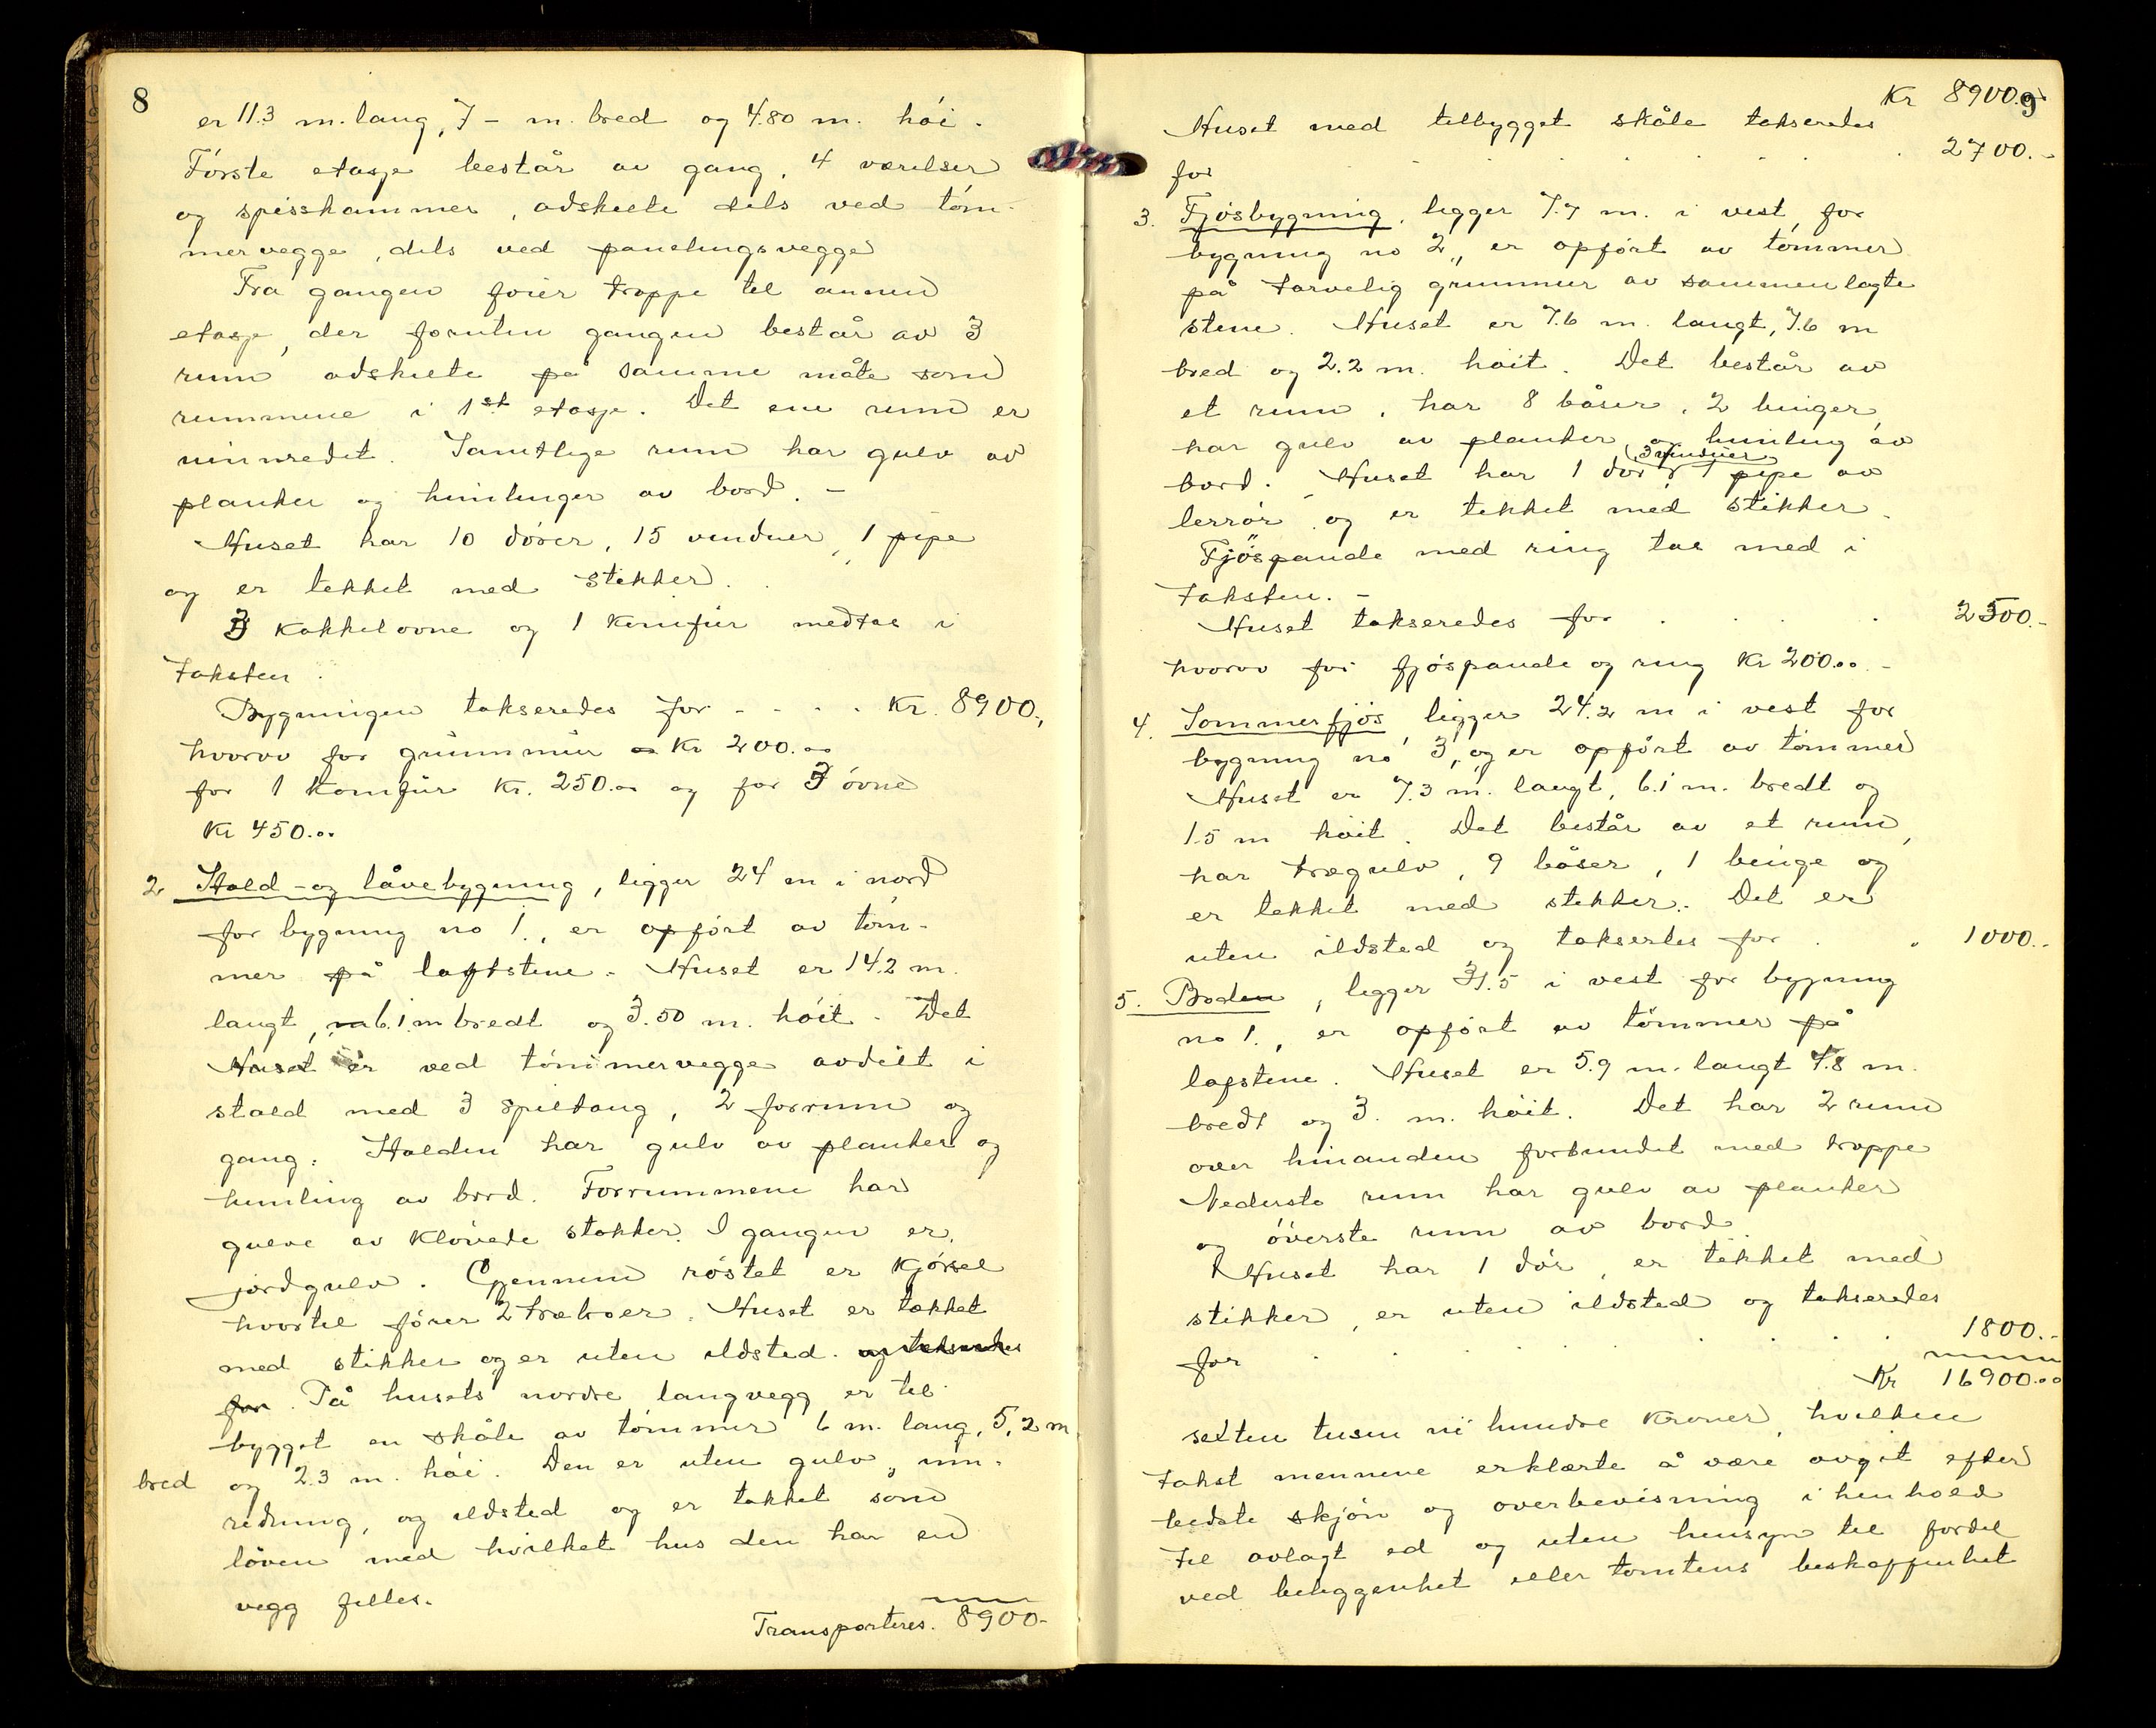 8
er 11.3 m. lang, 7 - m. bred og 4.80 m. høi.
Første etasje består av gang, 4 værelser
og spisskammer, adskilte dels ved tøm-
mervegge, dels ved panelingsvegge
Fra gangen fører trappe til annen
etasje, der foruten gangen består av 3
rum adskilte på samme måte som
rummene i 1st etasje. Det ene rum er
uinnredet. Samtlige rum har gulv av
planker og himlinger av bord. -
Huset har 10 dører, 15 vinduer, 1 pipe
og er tekket med stikker.
3 kakkelovne og 1 komfür medtas i
taksten.
Bygningen takseredes for - - - . Kr. 8900.,
hvorav for grünnmür Kr 200.00
for 1 komfür Kr. 250.00 og for 3 ovne
Kr 450.00
2 Stald - og låvebygning, ligger 24 m i nord
for bygning no 1., er opført av tøm-
mer på laftstene. Huset er 14.2 m.
langt, 6.1 m bredt og 3.50 m. høit. Det
Huset er ved tømmervegge avdelt i
stald med 3 spiltaug, 2 forrum og
gang. Stalden har gulv av planker og
himling av bord. Forrummene har
gulve av kløvede stokker. I gangen er
jordgulv. Gjennem røstet er kjørsel
hvortil fører 2 træbroer. Huset er tækket
med stikker og er uten ildsted. og takseredes
for. På husets nordre langvegg er til
bygget en skåle av tømmer 6 m. lang, 5,2 m
bred og 2.3 m. høi. Den er uten gulv, inn-
redning, og ildsted og er tækket som
låven med hvilket hus den har en
vegg felles.
Transporteres. 8900-
Kr 8900.
9
Huset med tilbygget skåle takseredes
for . . . . . . . 2700.-
3. Fjøsbygning, ligger 7.7 m. i vest for
bygning no 2, er opført av tømmer
på tarvelig grunnmur av sammenlagte
stene. Huset er 7.6 m. langt, 7.6 m
bred og 2.2 m. høit. Det består av
et rum, har 8 båser, 2 binger,
har gulv av planker og himling av
3 vinduer
bord. Huset har 1 dør & 1 pipe av
lerrør og er tekket med stikker.
Fjøspande med ring tas med i
taksten. -
Huset takseredes for . . . . 2500.-
hvorav for fjøspande og ring Kr 200.00 -
4. Sommerfjøs ligger 24.2 m i vest for
bygning no 3, og er opført av tømmer
Huset er 7.3 m. langt, 6.1 m. bredt og
1.5 m høit. Det består av et rum,
har trægulv, 9 båser, 1 binge og
er tekket med stikker. Det er
uten ildsted og taksertes for . . 1000.-
5. Boden, ligger 31.5 i vest for bygning
no 1., er opført av tømmer på
lafstene. Huset er 5.9 m. langt 4.8 m.
bredt og 3. m. høit. Det har 2 rum
over hinanden forbundet med trappe
Nederste rum har gulv av planker
og øverste rum av bord.
Huset har 1 dør, er tekket med
stikker, er uten ildsted og takseredes
for . . . . . . . 1800.-
Kr 16900.00
seksten tusen ni hundre kroner, hvilken
takst mennene erklærte å være avgit efter
bedste skjøn og overbevisning i henhold
til avlagt ed og uten hensyn til fordel
ved beliggenhet eller tomtens beskaffenhet